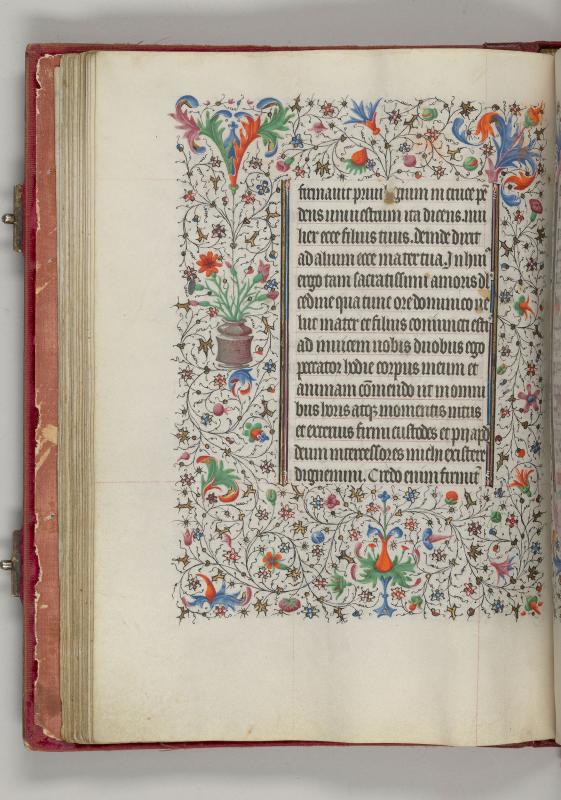 firmauit priui gium in cruce pē
dens unus uestrum ita dicens. mu
lier ecce filius tuus. deinde dixit
ad alium ecce mater tua. In huiꝰ
ergo tam sacratissimi amoris dl
cedine qua tunc ore dominico u
lut mater et filius coniuncti esti
ad inuicem uobis duobus ego
peccator hodie corpus meum et
animam cōmendo ut in omni
bus horis atq; momentis intus
et exterius firmi custodes et pij apd
deum intercessores michi existere
dignemini. Credo enim firmit̄